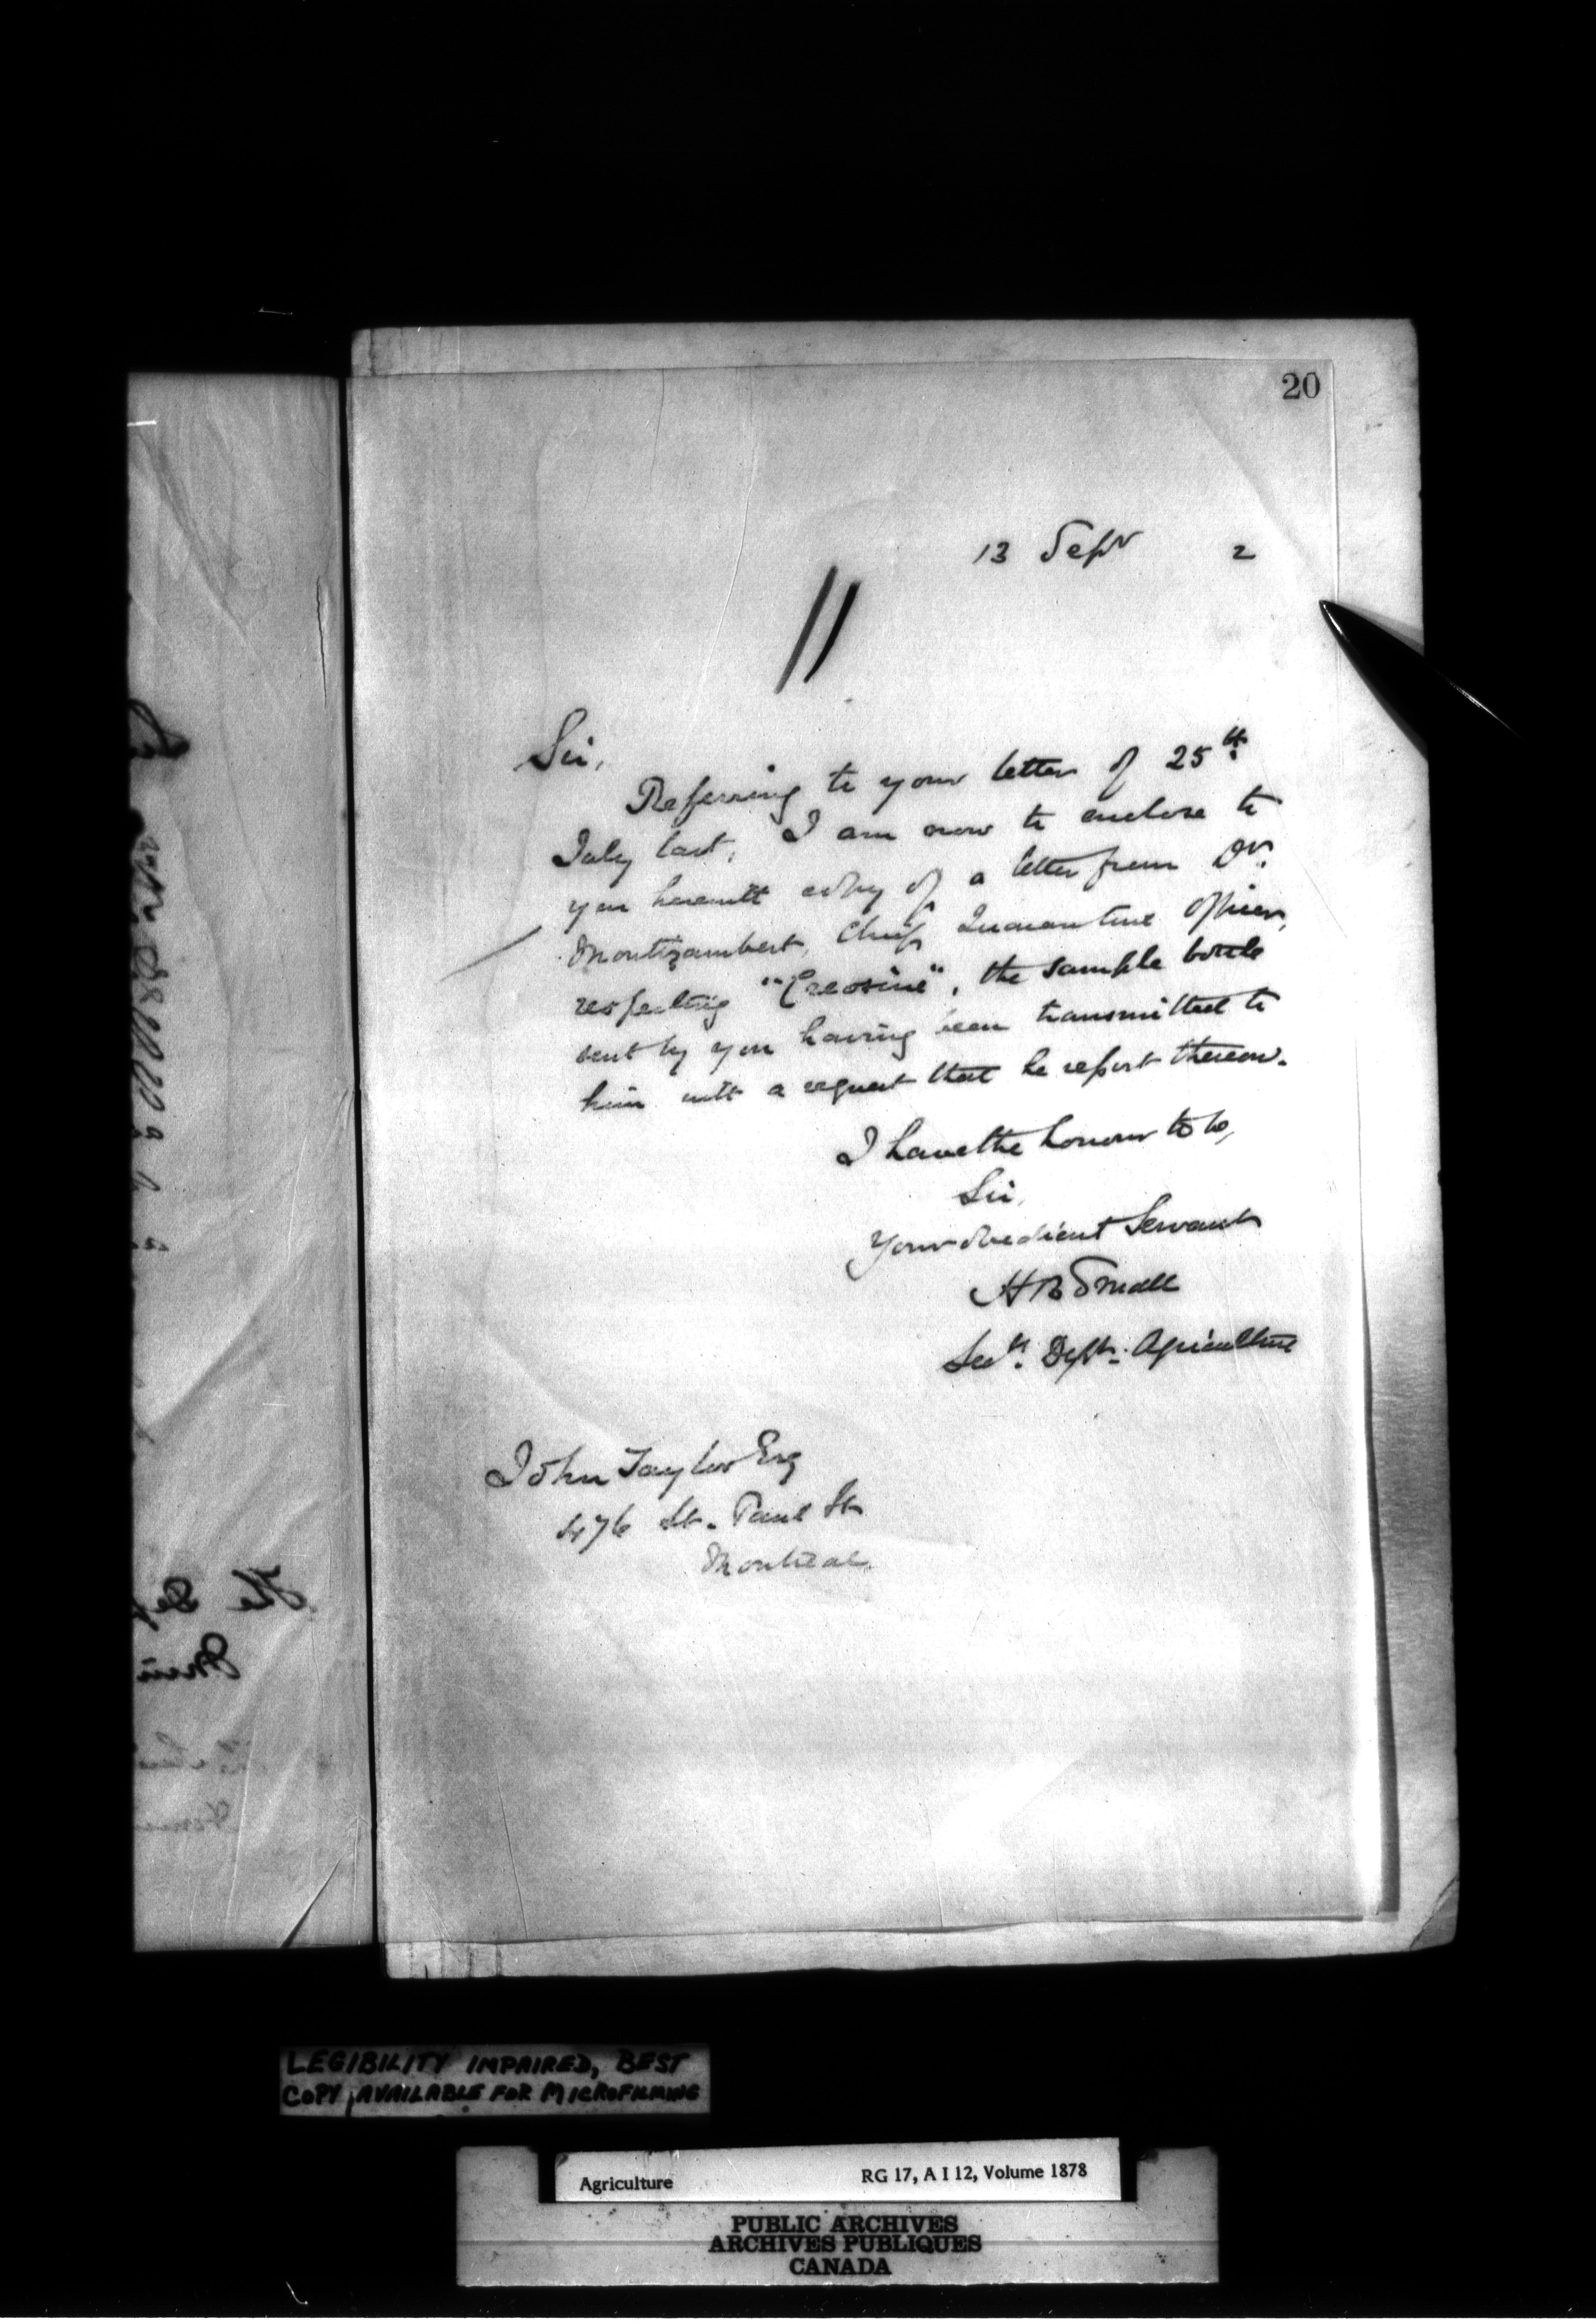 20
13 Sepr 2
//
Sir,
Referring to your letter of 25th
July last, I am now to enclose to
you herewith copy of a letter from Dr.
Montizambert, Chief Quarantine Officer,
respecting "Creosine", the sample bottle
sent by you having been transmitted to
him with a request that he report thereon.
I have the honour to be,
Sir,
Your obedient Servant
H B Small
Secy. Dept. Agriculture
John Taylor Esq
476 St. Paul St
Montreal
LEGIBILITY IMPAIRED, BEST
COPY AVAILABLE FOR MICROFILMING
Agriculture RG 17, A I 12, Volume 1878
PUBLIC ARCHIVES
ARCHIVES PUBLIQUES
CANADA